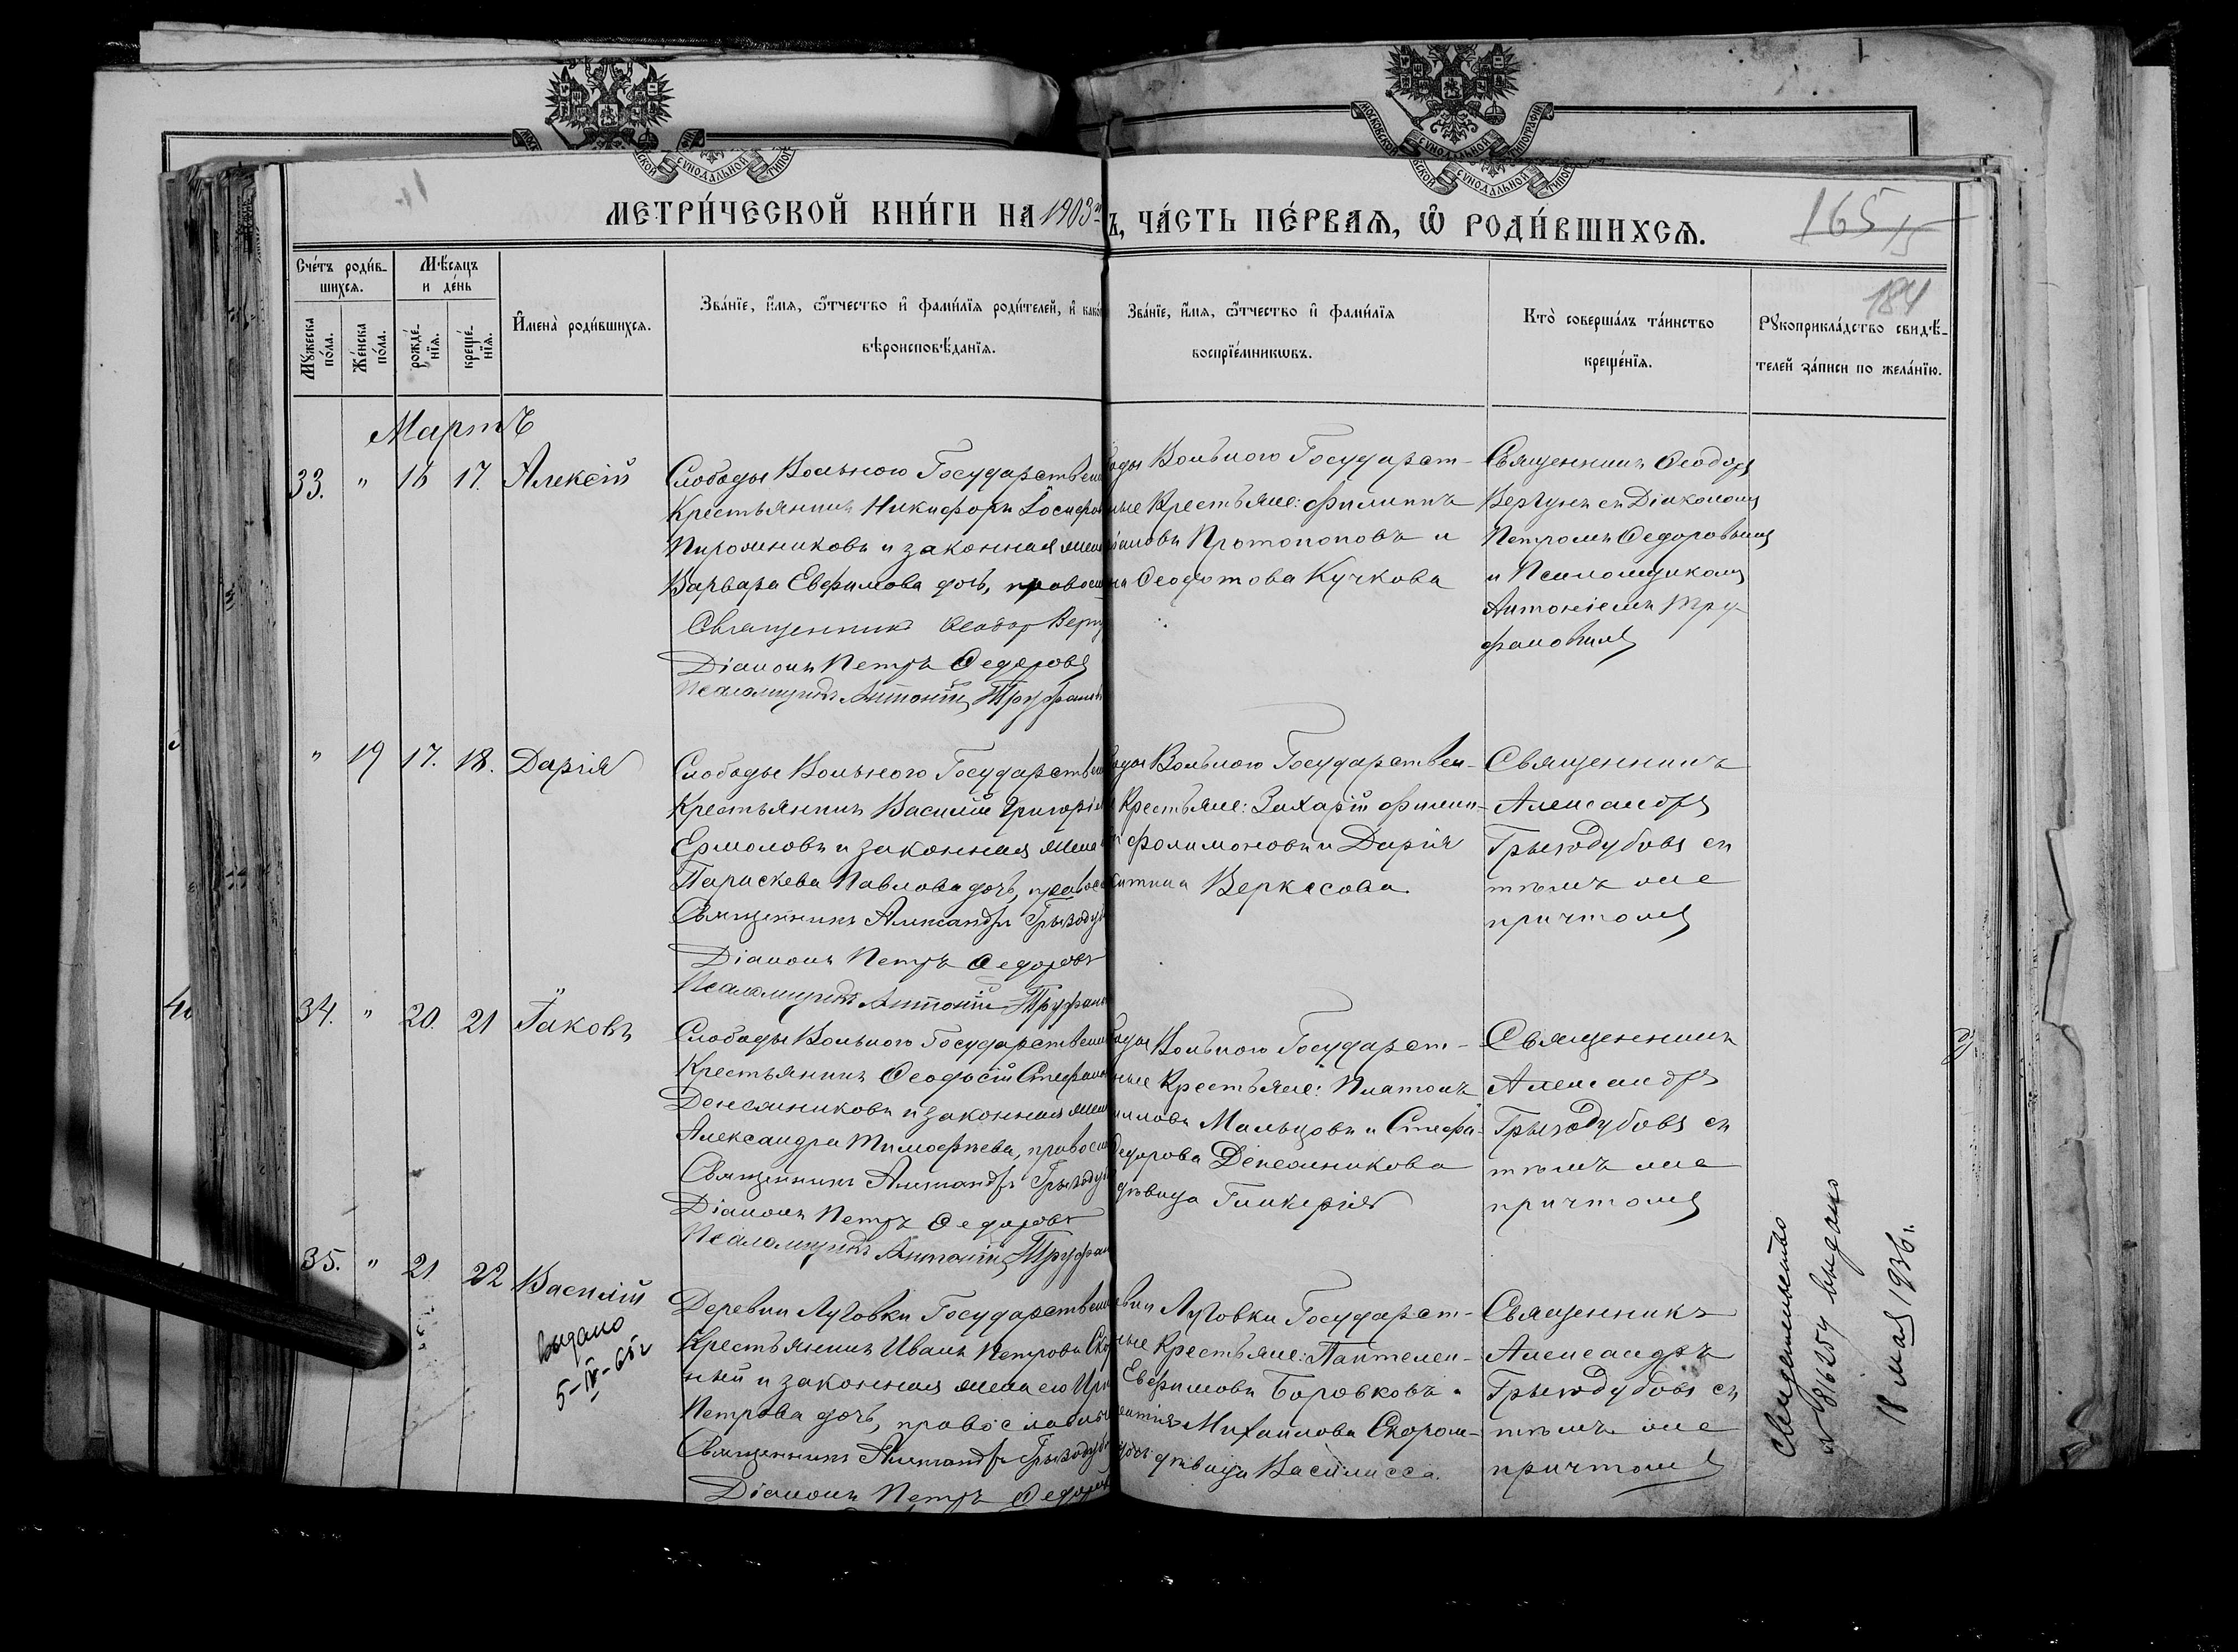 МЕТРИ́ЧЕСКОЙ КНИ́ГИ НА 1903 й
Ъ, ЧА́СТЬ ПЕ́РВАѦ, Ѡ РОДИ́ВШИХСѦ.
165
15
184
Сче́тъ роди́в-
шихсѧ.
Мѣ́сѧцъ
и де́нь
Мꙋ́жеска по́ла.
Же́нска по́ла.
рожде́-
нїѧ.
креще́-
нїѧ.
И҆мена̀ роди́вшихсѧ.
Зва́нїе, и҆́мѧ, ѻ҆́тчество и҆ фами́лїѧ роди́телей, и҆ како́
вѣроисповѣ́данїѧ.
Зва́нїе, и҆́мѧ, ѻ҆́тчество и҆ фами́лїѧ
воспрїе́мникѡвъ.
Кто̀ соверша́лъ та́инство
креще́нїѧ.
Рꙋкоприкла́дство свидѣ́-
телей за́писи по жела́нїю.
Мартъ
33. " 16 17. Алексій
Слободы Вольного Государствен
Крестьянинъ Никифоръ Іосифов
Пирожниковъ и законная жена
Варвара Евфимова дочь, правосл
Священникъ Ѳеодор Верг
Діаконъ Петръ Ѳедоровъ
Псаломщикъ Антоній Труфанов
оды Вольного Государст-
ные Крестьяне: Филиппъ
Протопоповъ и
Ѳеодотова Кучкова
Священникъ Ѳеодоръ
Вергунъ съ Діакономъ
Петромъ Ѳедоровымъ
и Псаломщикомъ
Антоніемъ Тру-
фановымъ
" 19 17. 18. Дарія
Слободы Вольного Государствен
Крестьянинъ Василій Григоріев
Ермоловъ и законная жена
Параскева Павлова дочь, правосл
Священникъ Александръ Грызодуб
Діаконъ Петръ Ѳедоровъ
Псаломщикъ Антоній Труфанов
оды Вольного Государствен-
Крестьяне: Захарій Филип-
Филимоновъ и Дарія
Веркасова.
Священникъ
Александръ
Грызодубовъ съ
тѣмъ же
причтомъ
34. " 20. 21 Іаковъ
Слободы Вольного Государствен
Крестьянинъ Ѳеодосій Стефанов
Денежниковъ и законная жена
Александра Тимофѣева, правосл
Священникъ Александръ Грызодуб
Діаконъ Петръ Ѳедоровъ
Псаломщикъ Антоній Труфан
оды Вольного Государст-
ные Крестьяне: Платонъ
Мальцовъ и Стефа-
едорова Денежникова
дѣвица Гликерія
Священникъ
Александръ
Грызодубовъ съ
тѣмъ же
причтомъ
35. " 21 22 Василій
Выдано
5-IV-65г
Деревни Луговки Государствен
Крестьянинъ Иванъ Петровъ Ско
ный и законная жена его Ири
Петрова дочь, православны
Священникъ Александръ Грызодуб
Діаконъ Петръ Ѳедоров
вни Луговки Государст-
ные Крестьяне: Пантелеи-
Евфимовъ Боровковъ и
Михаилова Скором-
дѣвица Василисса.
Священникъ
Александръ
Грызодубовъ съ
тѣмъ же
причтомъ
Свидетельство
выдано
18 мая 1936 г.